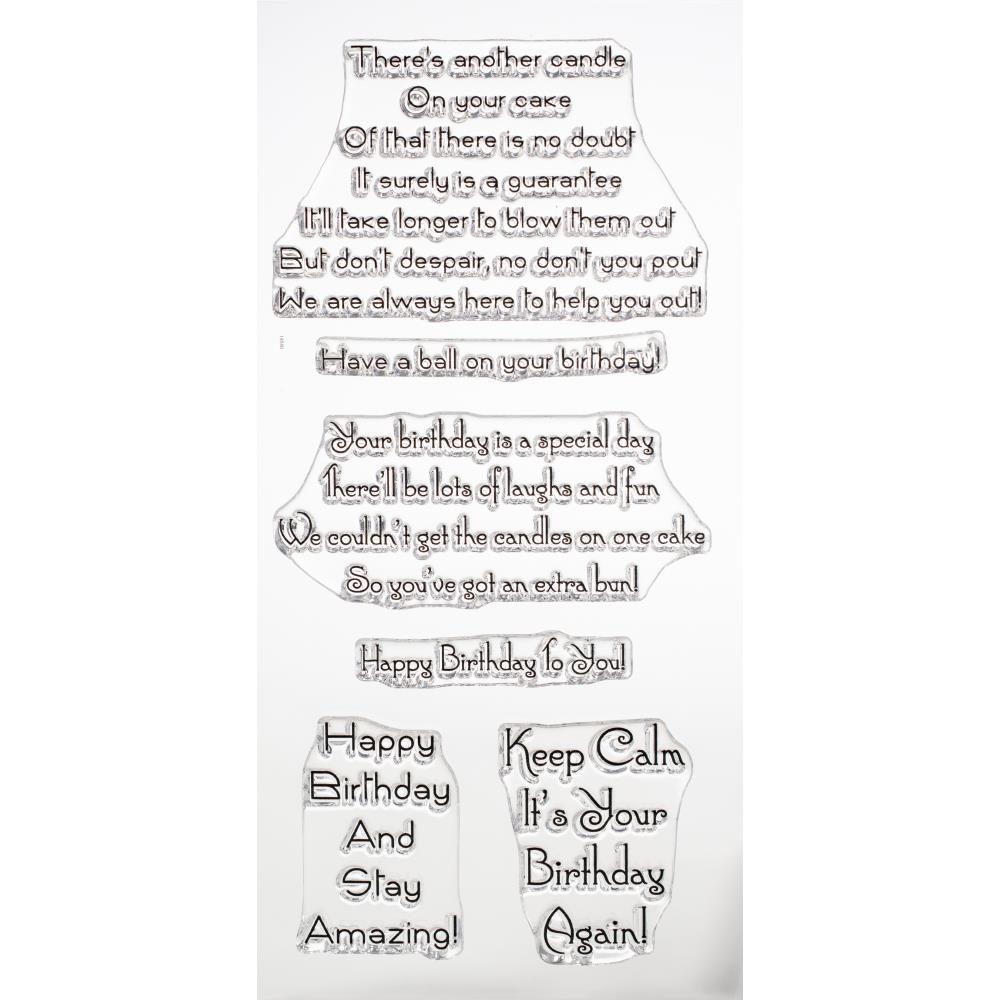 There's another candle
On your cake
Of that there is no doubt
It surely is a guarantee
It'll take longer to blow them out
But don't despair, no don't you pout
We are always here to help you out!
Have a ball on your birthday!
Your birthday is a special day
There'll be lots of laughs and fun
We couldn't get the candles on one cake
So you've got an extra bun!
Happy Birthday To You!
Happy
Birthday
And
Stay
Amazing!
Keep Calm
It's Your
Birthday
Again!